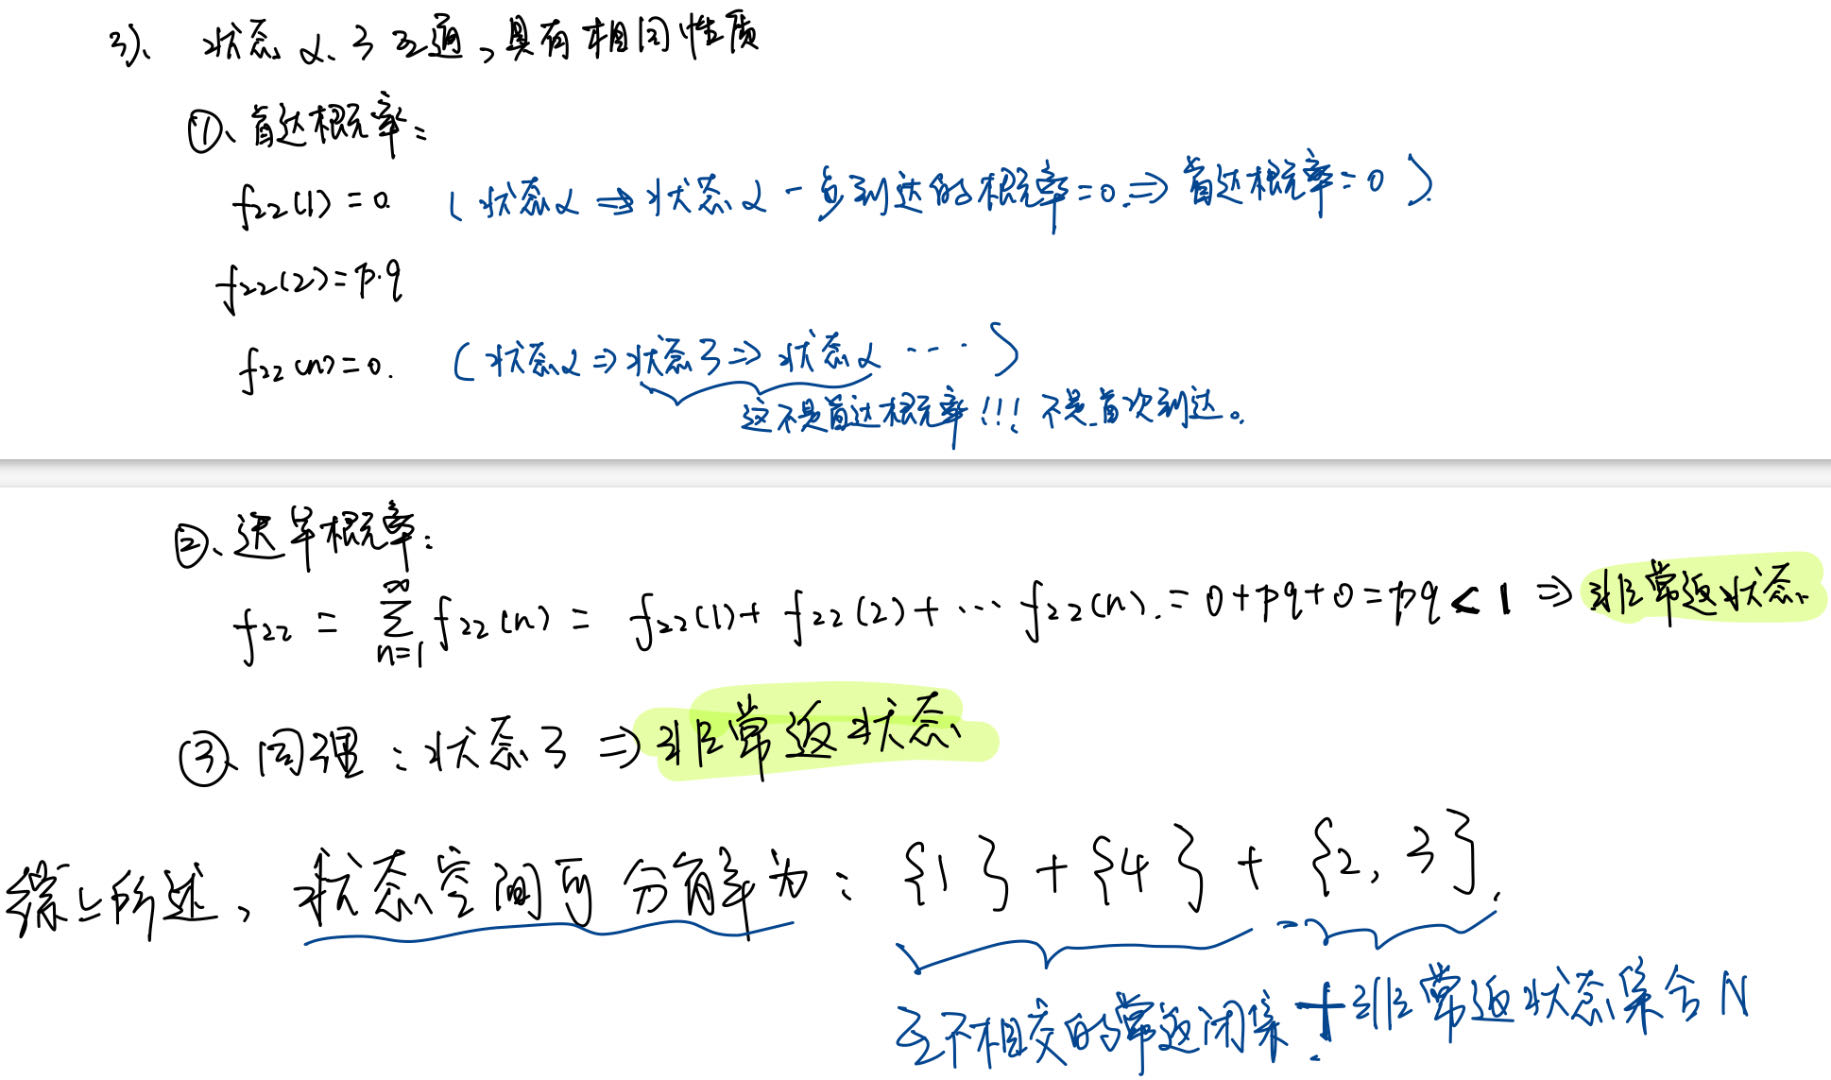 3)、状态2、3互通，具有相同性质
①、首达概率：
f₂₂(1)=0 (状态2⇒状态2一步到达的概率=0.⇒首达概率=0)
f₂₂(2)=p·q
f₂₂(n)=0. (状态2⇒状态3⇒状态2……)
这不是首达概率!!! 不是首次到达。
②、迟早概率：
f₂₂ = ∑_{n=1}^{∞} f₂₂(n) = f₂₂(1)+f₂₂(2)+…f₂₂(n).=0+pq+0=pq<1⇒非常返状态
③、同理：状态3⇒非常返状态
综上所述，状态空间可分解为：{1}+{4}+{2,3}.
互不相交的常返闭集+非常返状态集合N